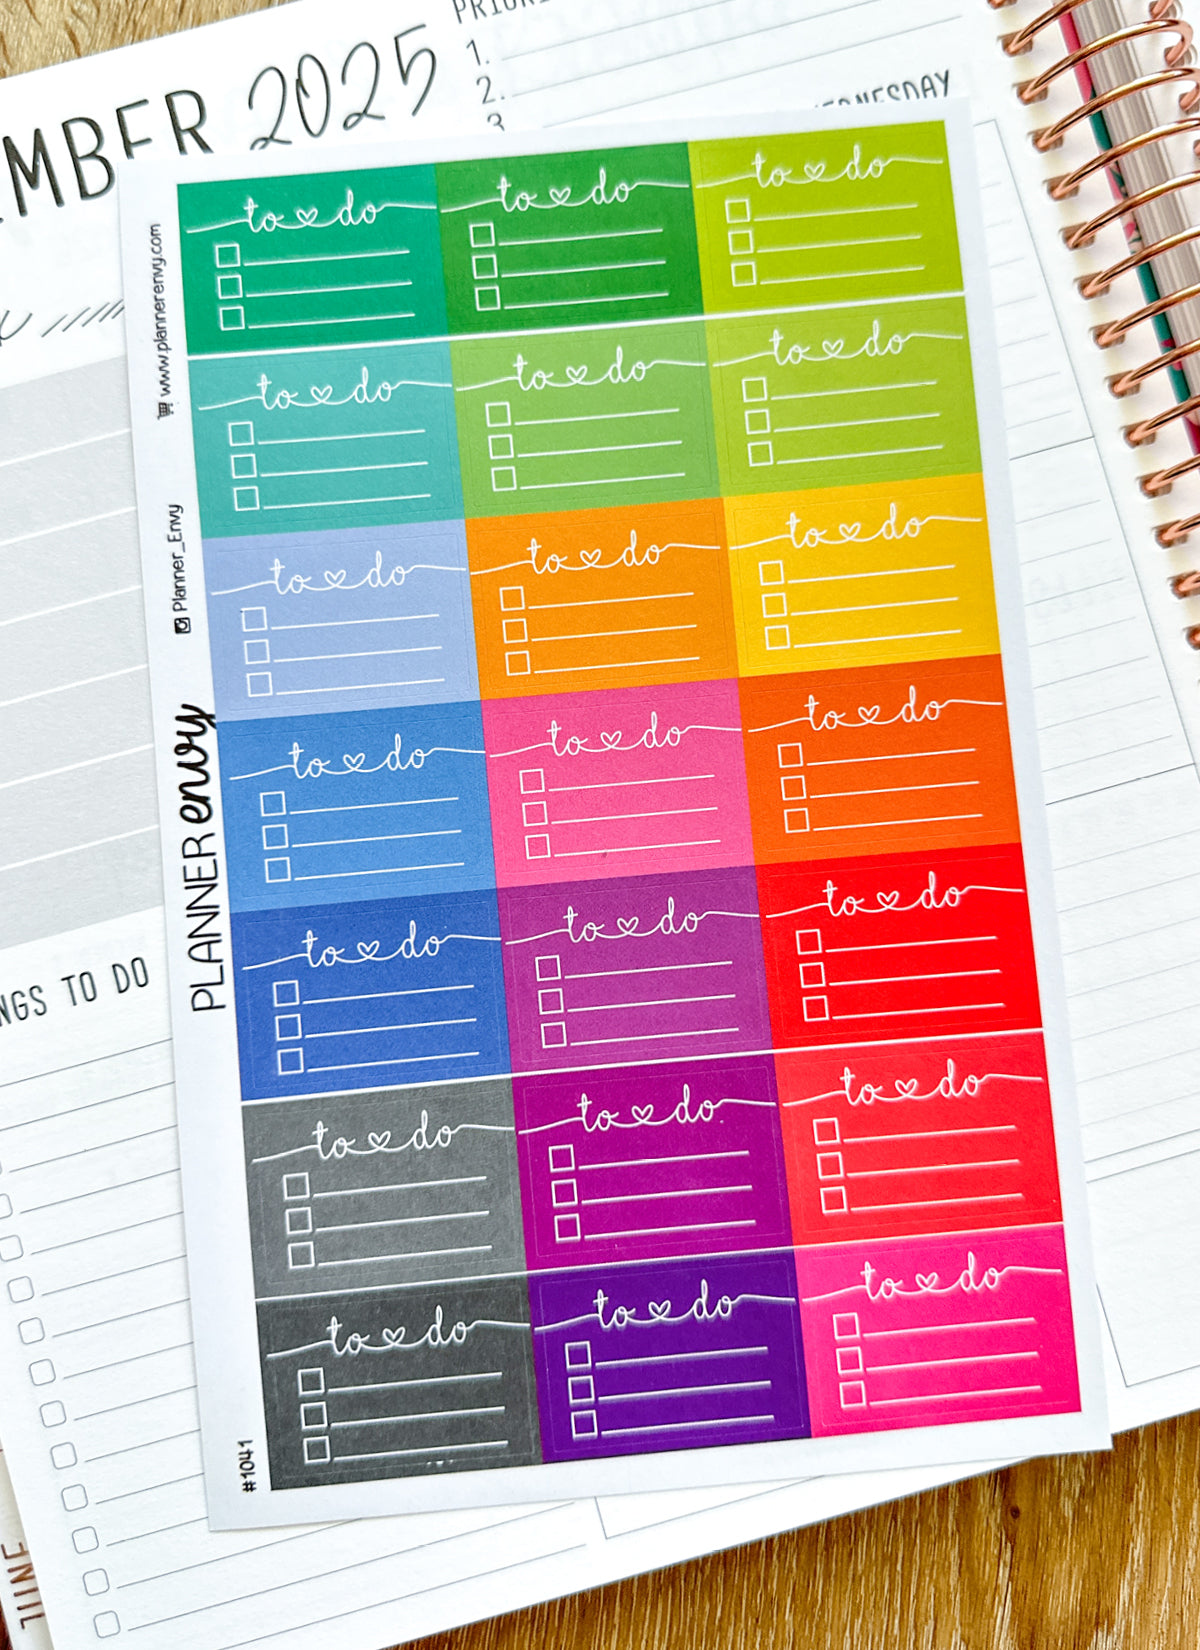 2025
1.
2.
3
www.plannerenvy.com
Planner_Envy
PLANNER envy
#1041
to do
to do
to do
to do
to do
to do
to do
to do
to do
to do
to do
to do
to do
to do
to do
to do
to do
to do
to do
to do
to do
TO DO
JUNE